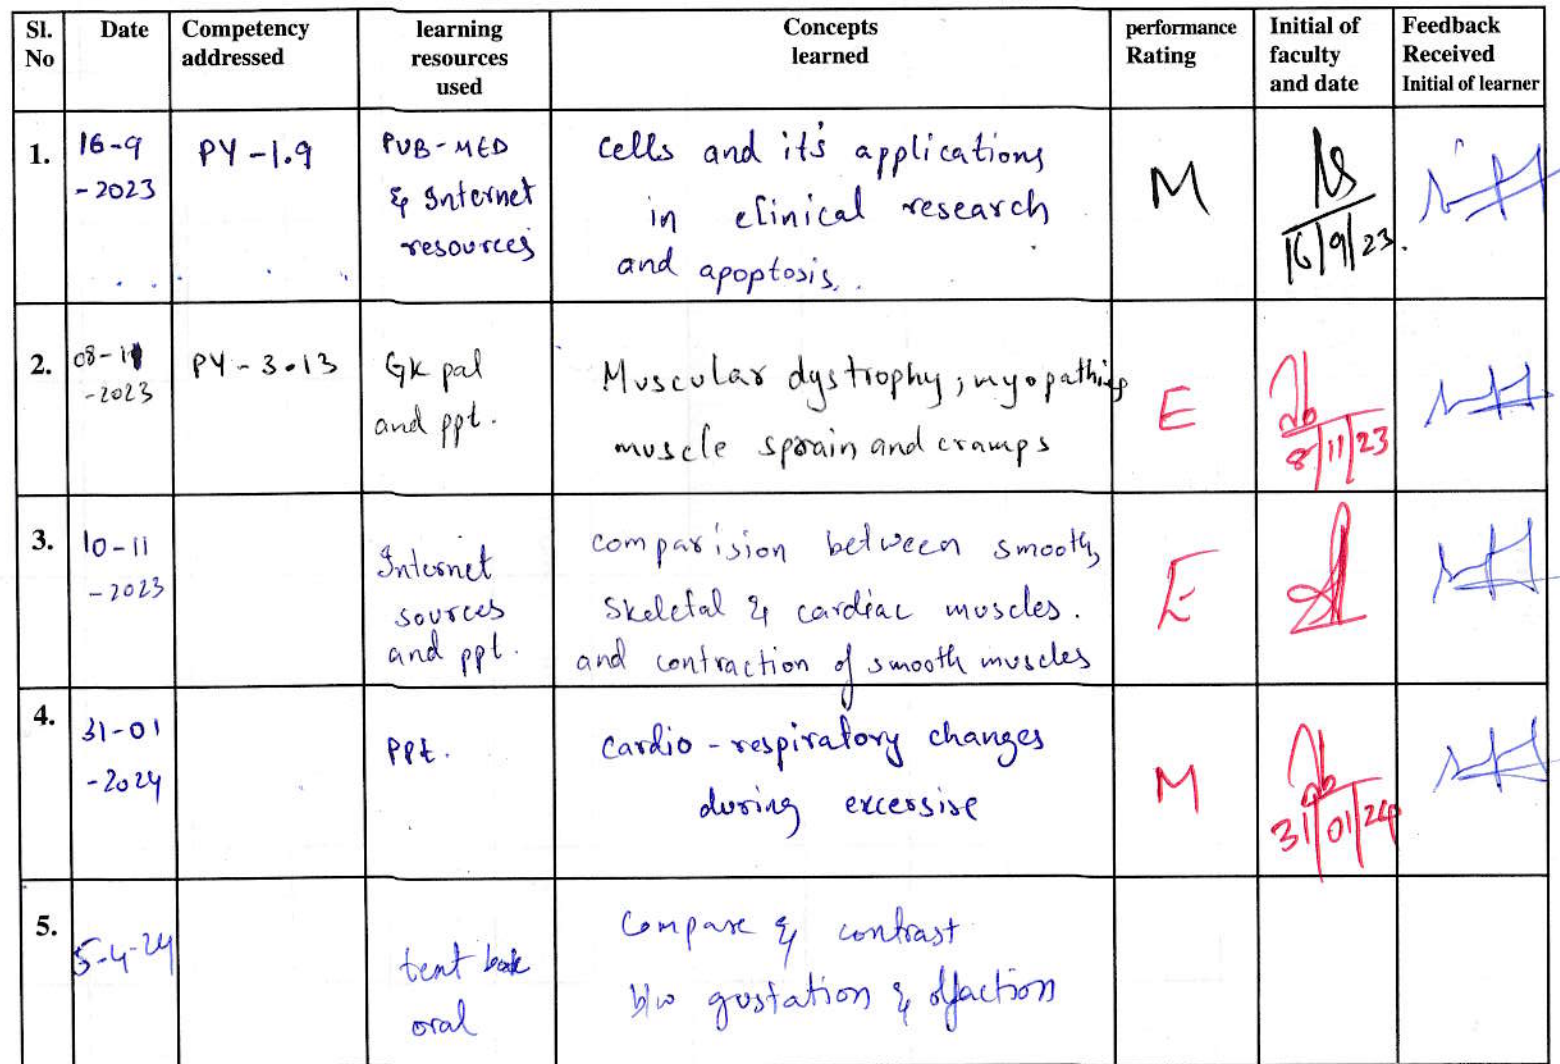 Sl. No
Date
Competency addressed
learning resources used
Concepts learned
performance Rating
Initial of faculty and date
Feedback Received Initial of learner
1.
16-9
-2023
PY-1.9
PUB-MED
& Internet
resources
cells and it's applications
in clinical research
and apoptosis.
M
16/9/23.
2.
08-11
-2023
PY-3.13
GK pal
and ppt.
Muscular dystrophy, myopathies
muscle sprain and cramps
E
8/11/23
3.
10-11
-2023
Internet
sources
and ppt.
comparision between smooth,
skeletal & cardiac muscles.
and contraction of smooth muscles
E
4.
31-01
-2024
PPt.
cardio-respiratory changes
during excersise
M
31/01/24
5.
5-4-24
text book
oral
Compare & contrast
b/w gustation & olfaction